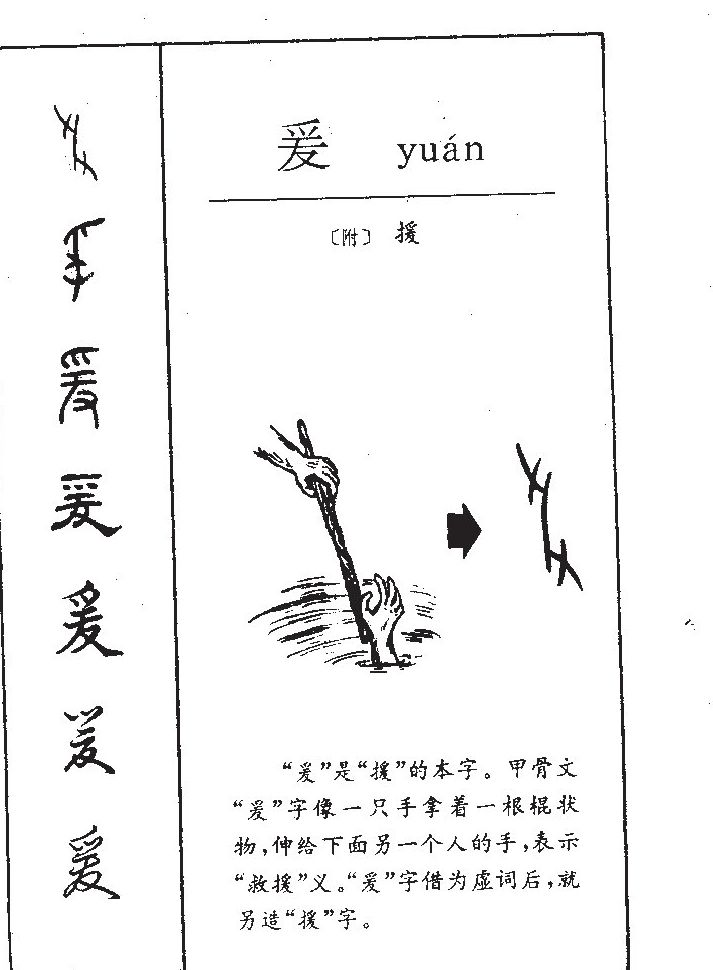 爰 yuán
〔附〕 援
“爰”是“援”的本字。甲骨文
“爰”字像一只手拿着一根棍状
物，伸给下面另一个人的手，表示
“救援”义。“爰”字借为虚词后，就
另造“援”字。
爰
爰
爰
爰
爰
爰
爰